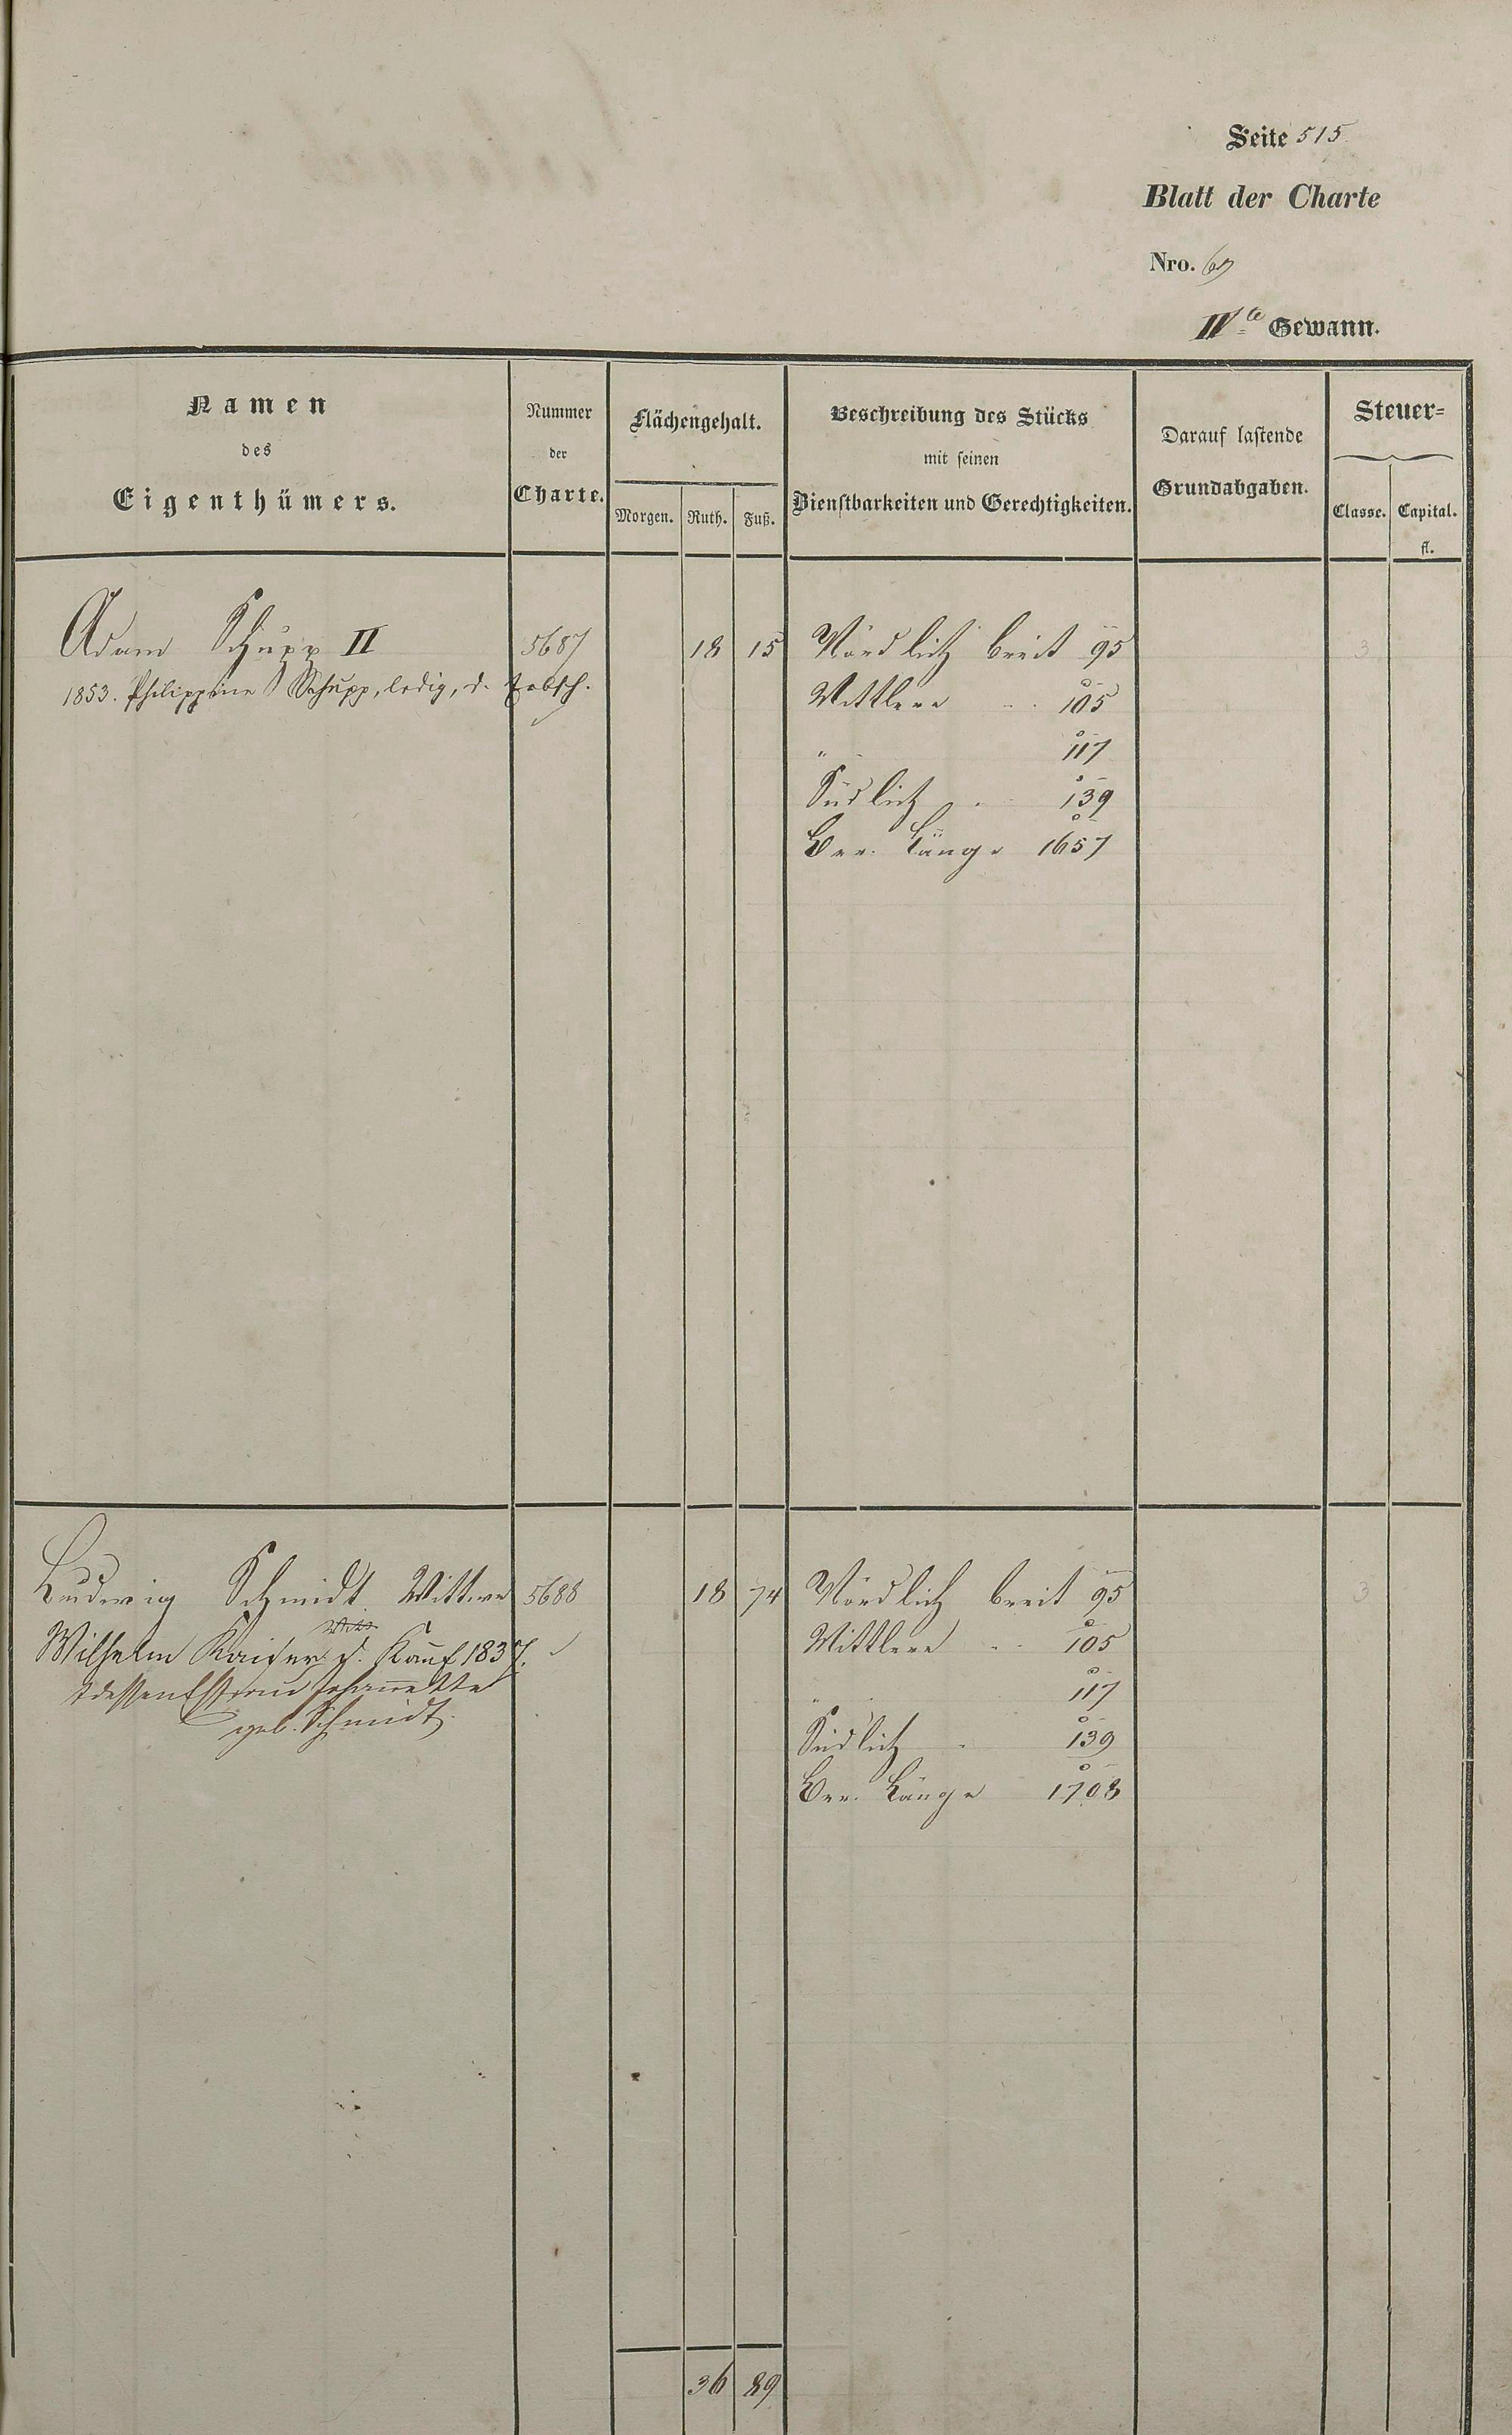 Seite 515
Blatt der Charte
Nro. 69
IVte Gewann.
Namen
des
Eigenthümers.
Nummer
der
Charte.
Flächengehalt.
Morgen. Ruth. Fuß.
Beschreibung des Stücks
mit seinen
Dienstbarkeiten und Gerechtigkeiten.
Darauf lastende
Grundabgaben.
Steuer=
Classe. Capital.
fl.
Adam Schupp II 5687 18 15 Nördlich breit 95 3
1853. Philippine Schupp, ledig, d. Erbsch.
Mittlere " 105
" 117
Südlich " 139
Ber. Länge 1657
Ludwig Schmidt Wittwe 5688 18 74 Nördlich breit 95 3
Wilhelm Kaiser d. Kauf 1837.
Mittlere " 105
dessen Ehefrau Johannette
" 117
geb. Schmidt.
Südlich " 139
Ber. Länge 1708
36 89